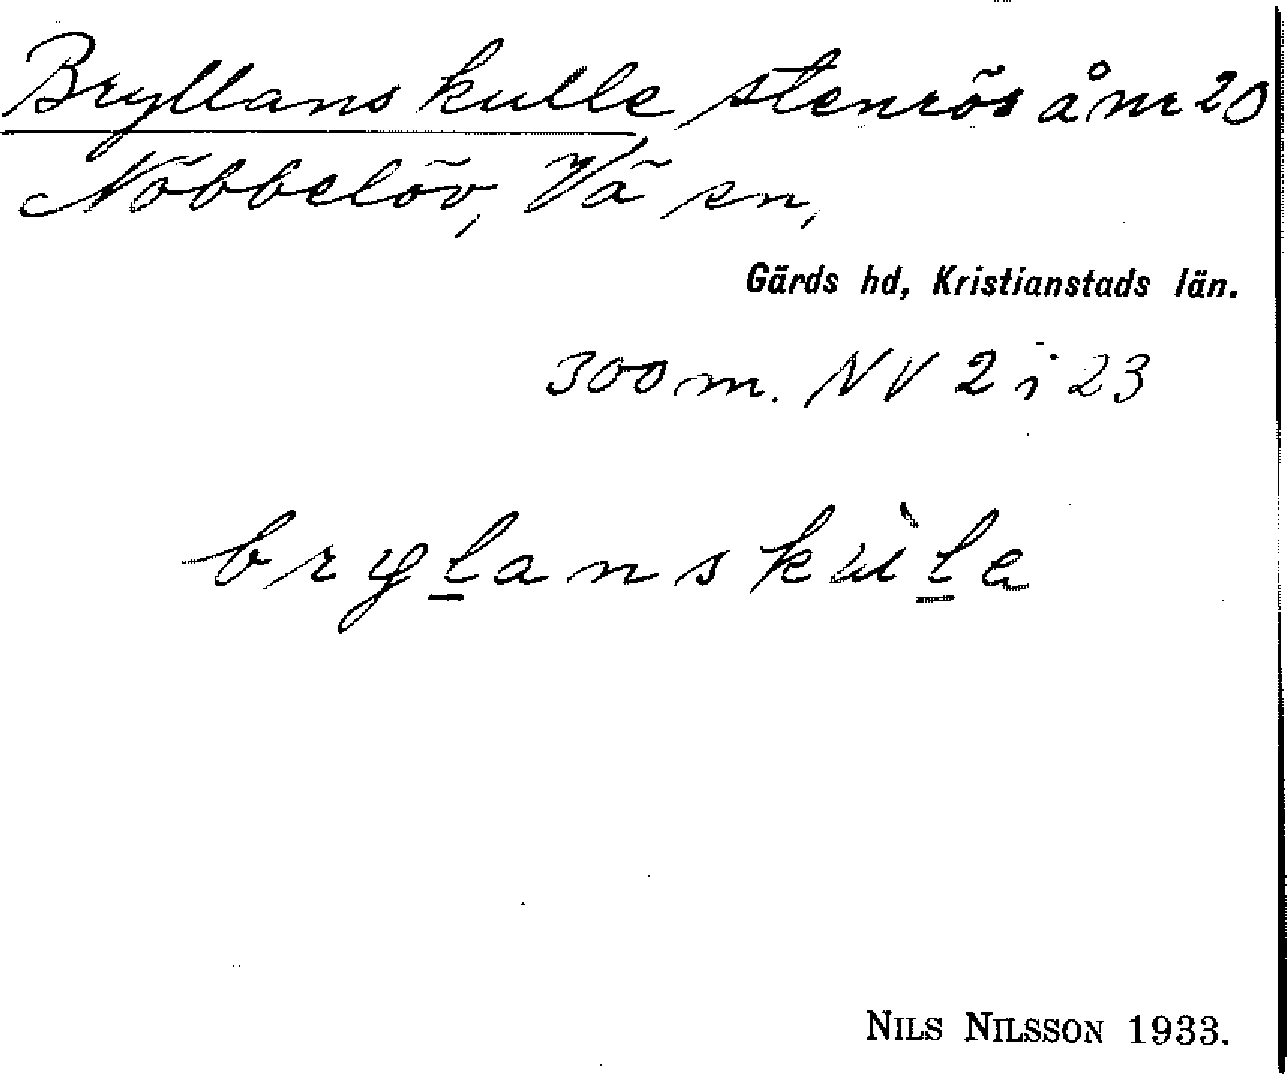 Bryllans kulle stenrös å nr 20
Nöbbelöv, Vä sn,
Gärds hd, Kristianstads län.
300 m. NV 2 i 23
brylanskùla
NILS NILSSON 1933.